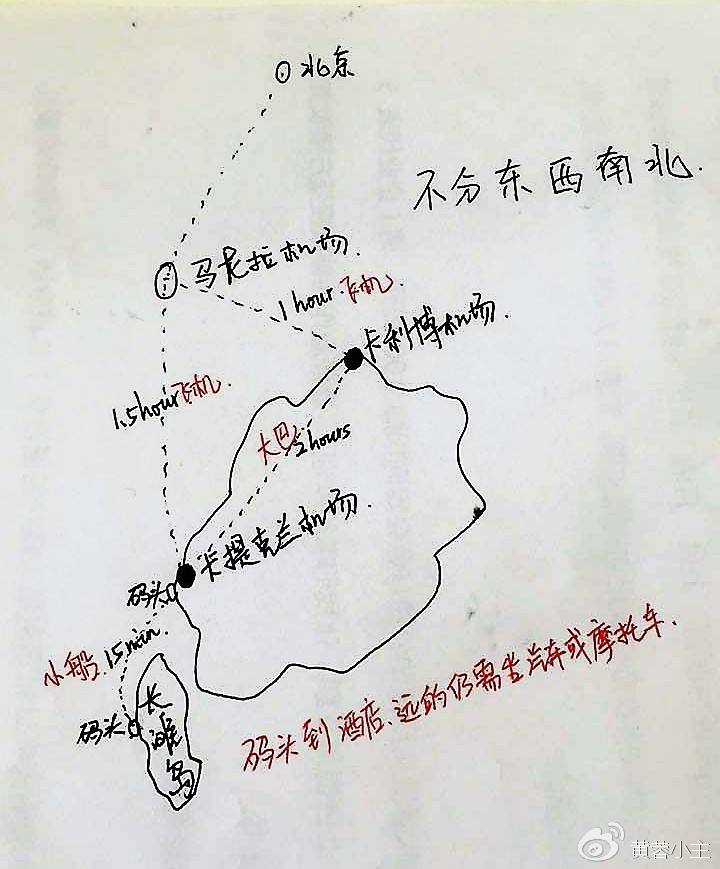 北京
不分东西南北.
马尼拉机场.
1 hour.飞机
卡利博机场.
1.5hour飞机
大巴 2 hours
卡提克兰机场.
码头
小船 15min.
码头
长滩岛
码头到酒店、远的仍需坐汽车或摩托车.
黄蓉小主